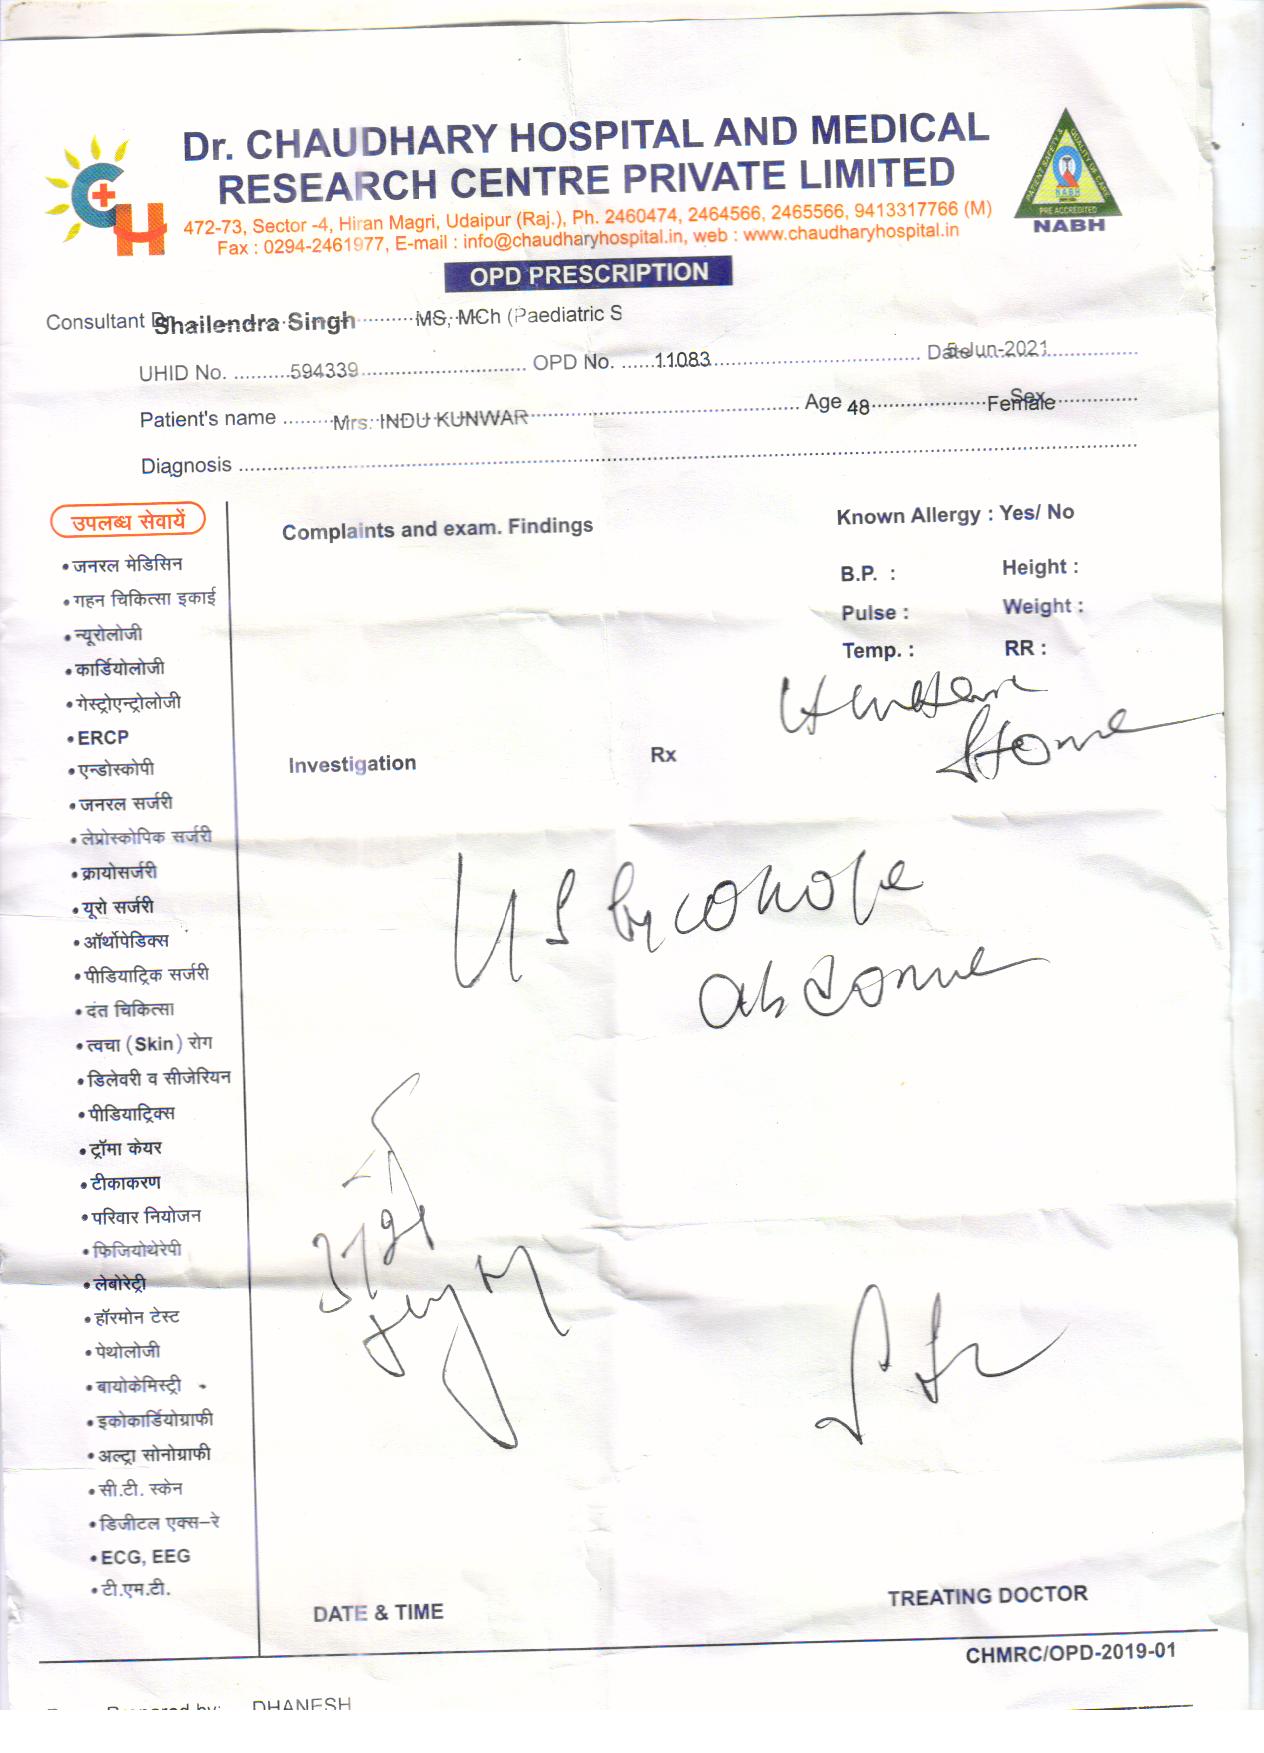 Dr. CHAUDHARY HOSPITAL AND MEDICAL
RESEARCH CENTRE PRIVATE LIMITED
472-73, Sector -4, Hiran Magri, Udaipur (Raj.), Ph. 2460474, 2464566, 2465566, 9413317766 (M)
Fax : 0294-2461977, E-mail : info@chaudharyhospital.in, web : www.chaudharyhospital.in
PATIENT SAFETY & QUALITY OF CARE
NABH
PRE ACCREDITED
NABH
OPD PRESCRIPTION
Consultant Dr. Shailendra Singh MS, MCh (Paediatric S
UHID No. 594339 OPD No. 11083 Date 5-Jun-2021
Patient's name Mrs. INDU KUNWAR Age 48 Sex Female
Diagnosis
उपलब्ध सेवायें
• जनरल मेडिसिन
• गहन चिकित्सा इकाई
• न्यूरोलोजी
• कार्डियोलोजी
• गेस्ट्रोएन्ट्रोलोजी
• ERCP
• एन्डोस्कोपी
• जनरल सर्जरी
• लेप्रोस्कोपिक सर्जरी
• क्रायोसर्जरी
• यूरो सर्जरी
• ऑर्थोपेडिक्स
• पीडियाट्रिक सर्जरी
• दंत चिकित्सा
• त्वचा (Skin) रोग
• डिलेवरी व सीजेरियन
• पीडियाट्रिक्स
• ट्रॉमा केयर
• टीकाकरण
• परिवार नियोजन
• फिजियोथेरेपी
• लेबोरेट्री
• हॉरमोन टेस्ट
• पेथोलोजी
• बायोकेमिस्ट्री
• इकोकार्डियोग्राफी
• अल्ट्रा सोनोग्राफी
• सी.टी. स्केन
• डिजीटल एक्स-रे
• ECG, EEG
• टी.एम.टी.
Complaints and exam. Findings
Known Allergy : Yes/ No
B.P. : Height :
Pulse : Weight :
Temp. : RR :
Stone
Investigation Rx
DATE & TIME
TREATING DOCTOR
CHMRC/OPD-2019-01
Prepared by: DHANESH